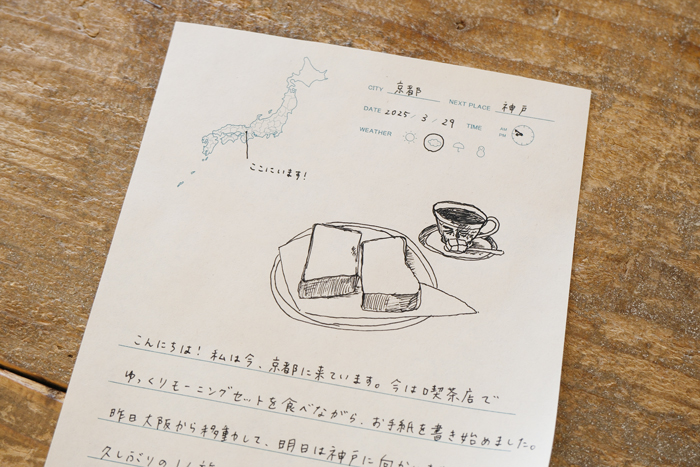 CITY 京都 NEXT PLACE 神戸
DATE 2025/3/29 TIME AM PM
WEATHER
ここにいます!
こんにちは! 私は今、京都に来ています。今は喫茶店で
ゆっくりモーニングセットを食べながら、お手紙を書き始めました。
昨日大阪から移動して、明日は神戸に向か
久しぶりの